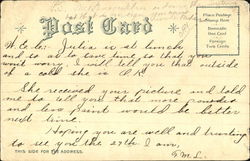 Post Card
Place Postage
Stamp Here
Domestic
One Cent
Foreign
Two Cents
Julia is at lunch
and so as to save time so that you
won't worry, I will tell you that outside
of a cold she is O.K.
She received your picture and told
me to tell you that more powder
and less paint would be better
next time.
Hoping you are well and trusting
to see you the 27th I am,
THIS SIDE FOR THE ADDRESS.